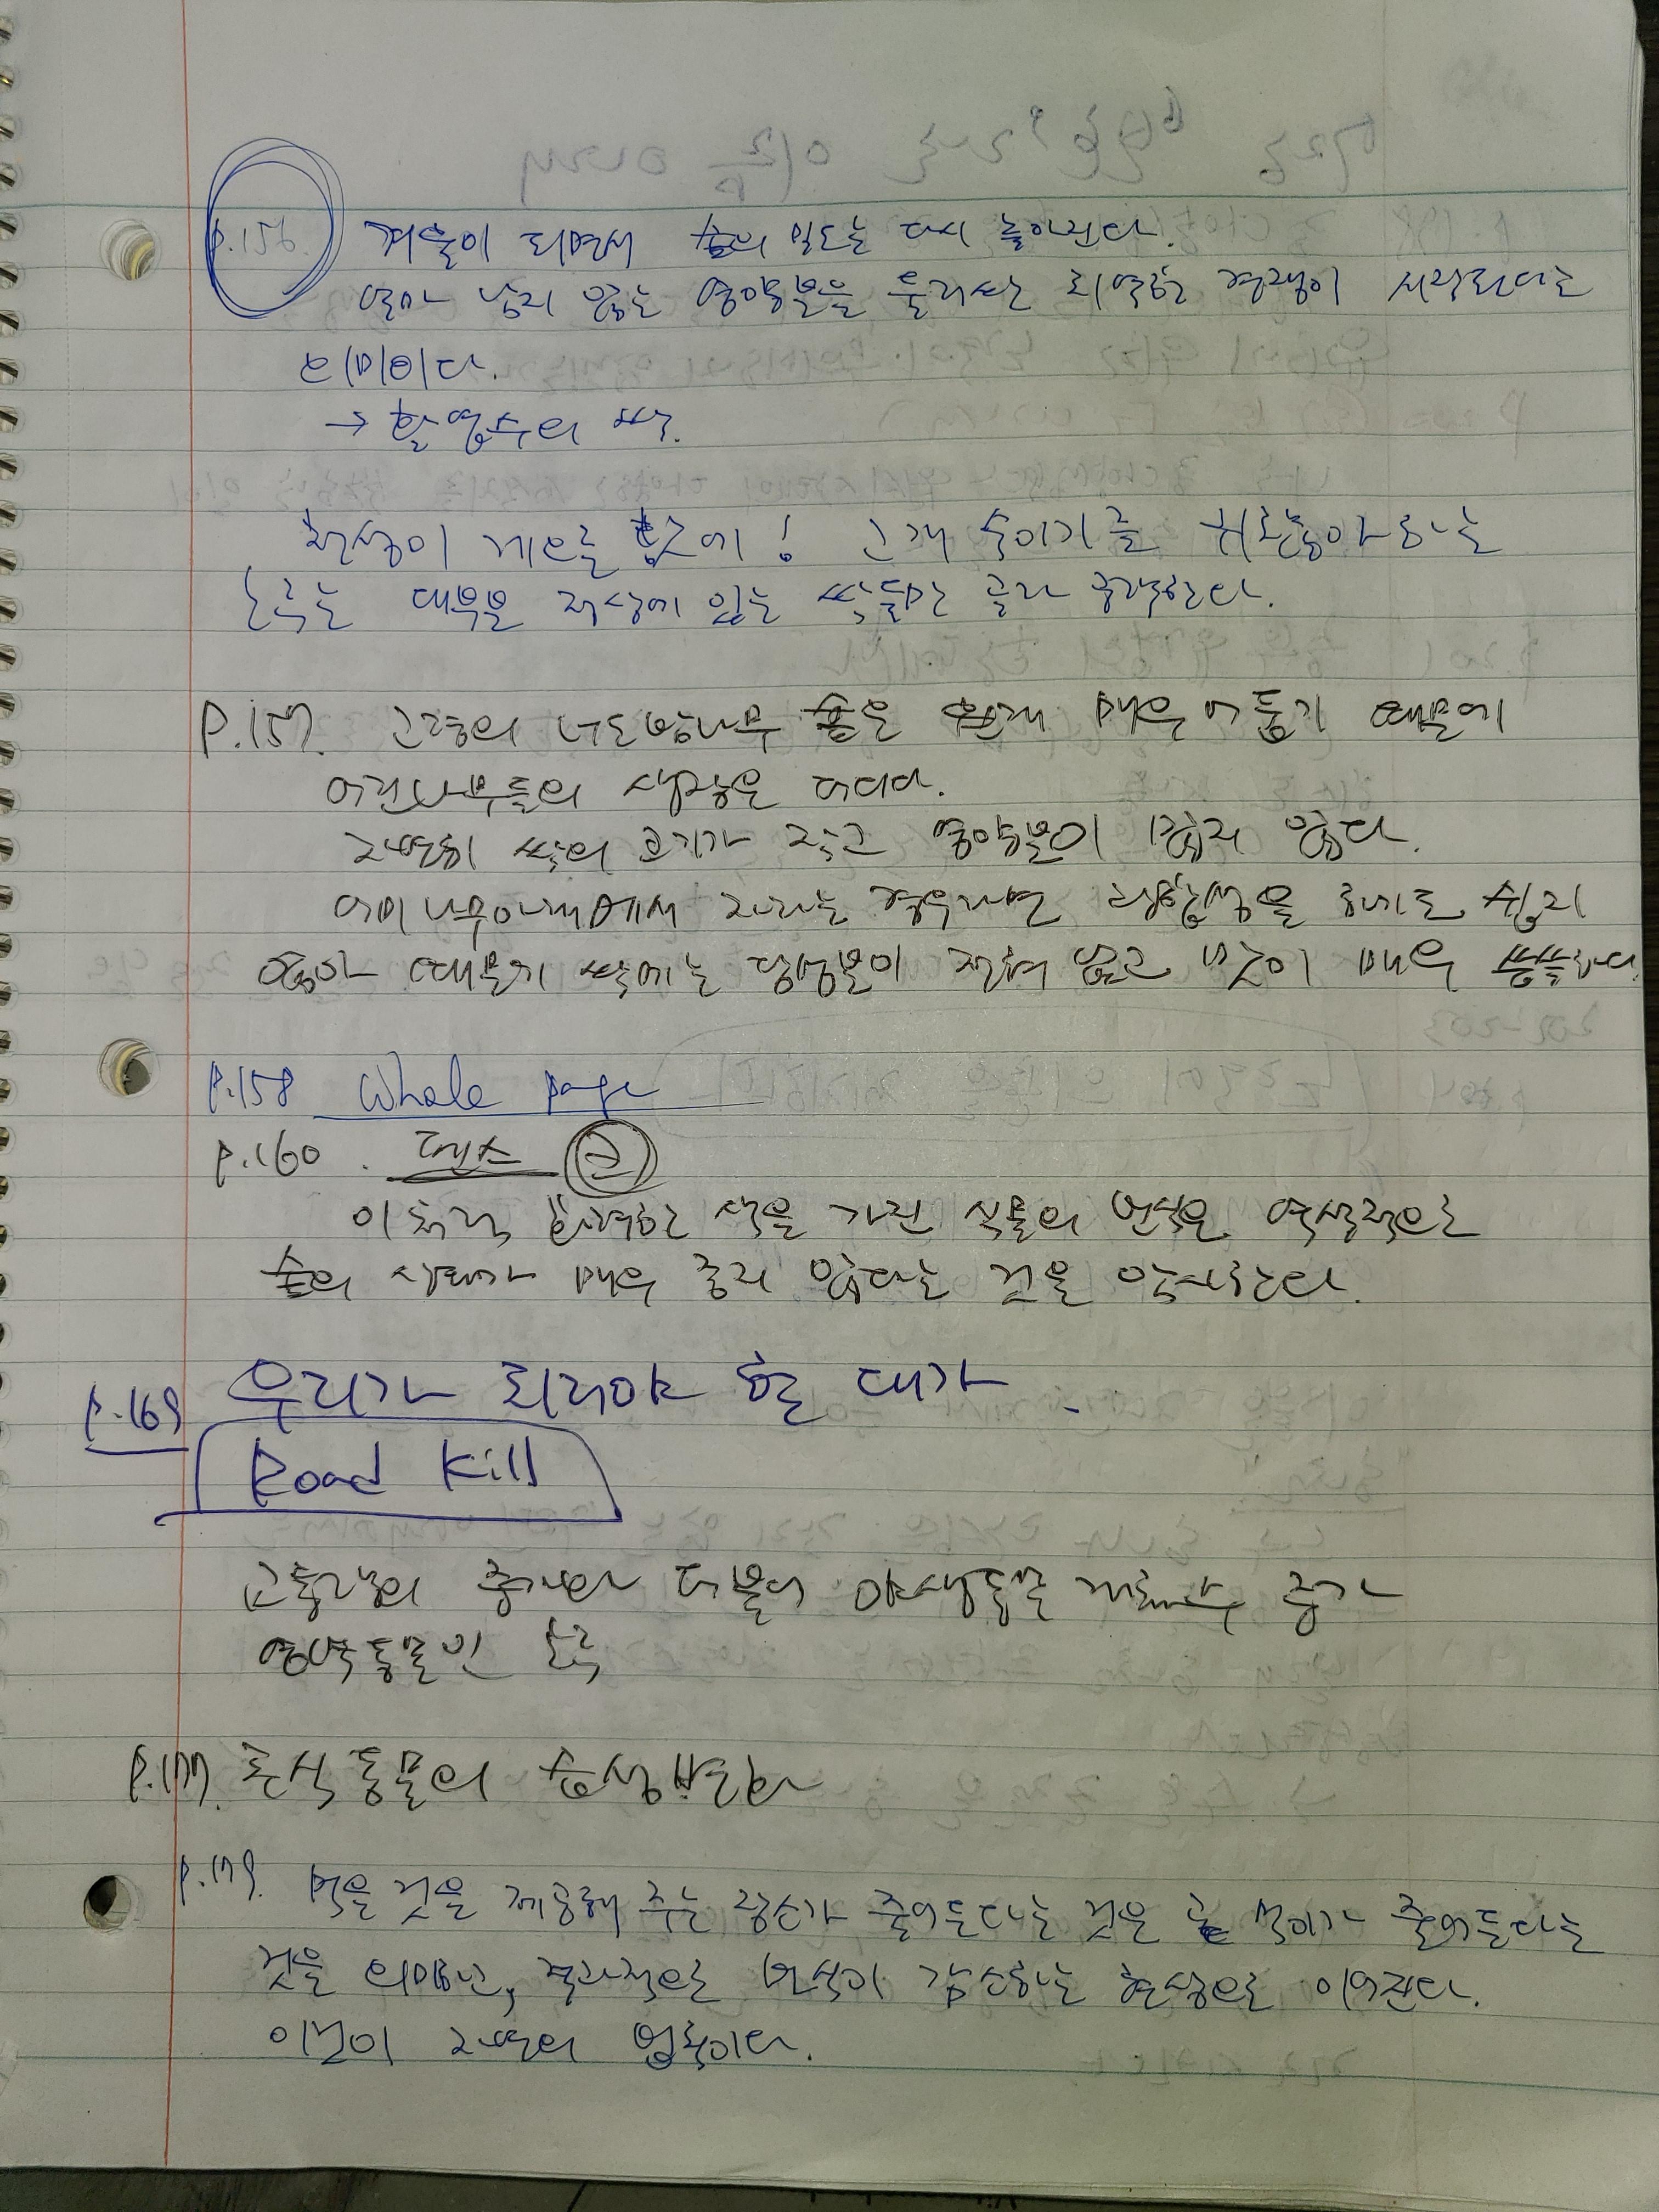 p.156. 겨울이 되면서 숲의 밀도는 다시 높아진다.
얼마 남지 않는 영양분을 둘러싼 치열한 경쟁이 시작된다는
의미이다.
→ 활엽수의 싹.
천성이 게으른 탓에! 고개 숙이기를 귀찮아하는
노루는 대부분 적상에 있는 싹들만 골라 공략한다.
p.157. 고령의 너도밤나무 숲은 현재 매우 어둡기 때문에
어린나무들의 생장은 더디다.
자연히 싹의 크기가 작고 영양분이 많지 않다.
어미나무아래에서 자라는 경우라면 광합성을 하기도 쉽지
않아 때문에 싹에는 당성분이 전혀 없고 맛이 매우 씁쓸하다
p.158 Whole page
p.160. 펜스
이처럼 화려한 색을 가진 식물의 번식은 역설적으로
숲의 상태가 매우 좋지 않다는 것을 암시한다.
p.169 우리가 치러야 할 대가.
Road Kill
교통량의 증가와 더불어 야생동물 개체수 증가
영역동물인 노루
p.177. 초식동물의 습성변화
p.179. 먹을 것을 제공해 주는 장소가 줄어든다는 것은 곧 먹이가 줄어든다는
것을 의미하며, 결과적으로 번식이 감소하는 현상으로 이어진다.
이것이 자연의 법칙이다.